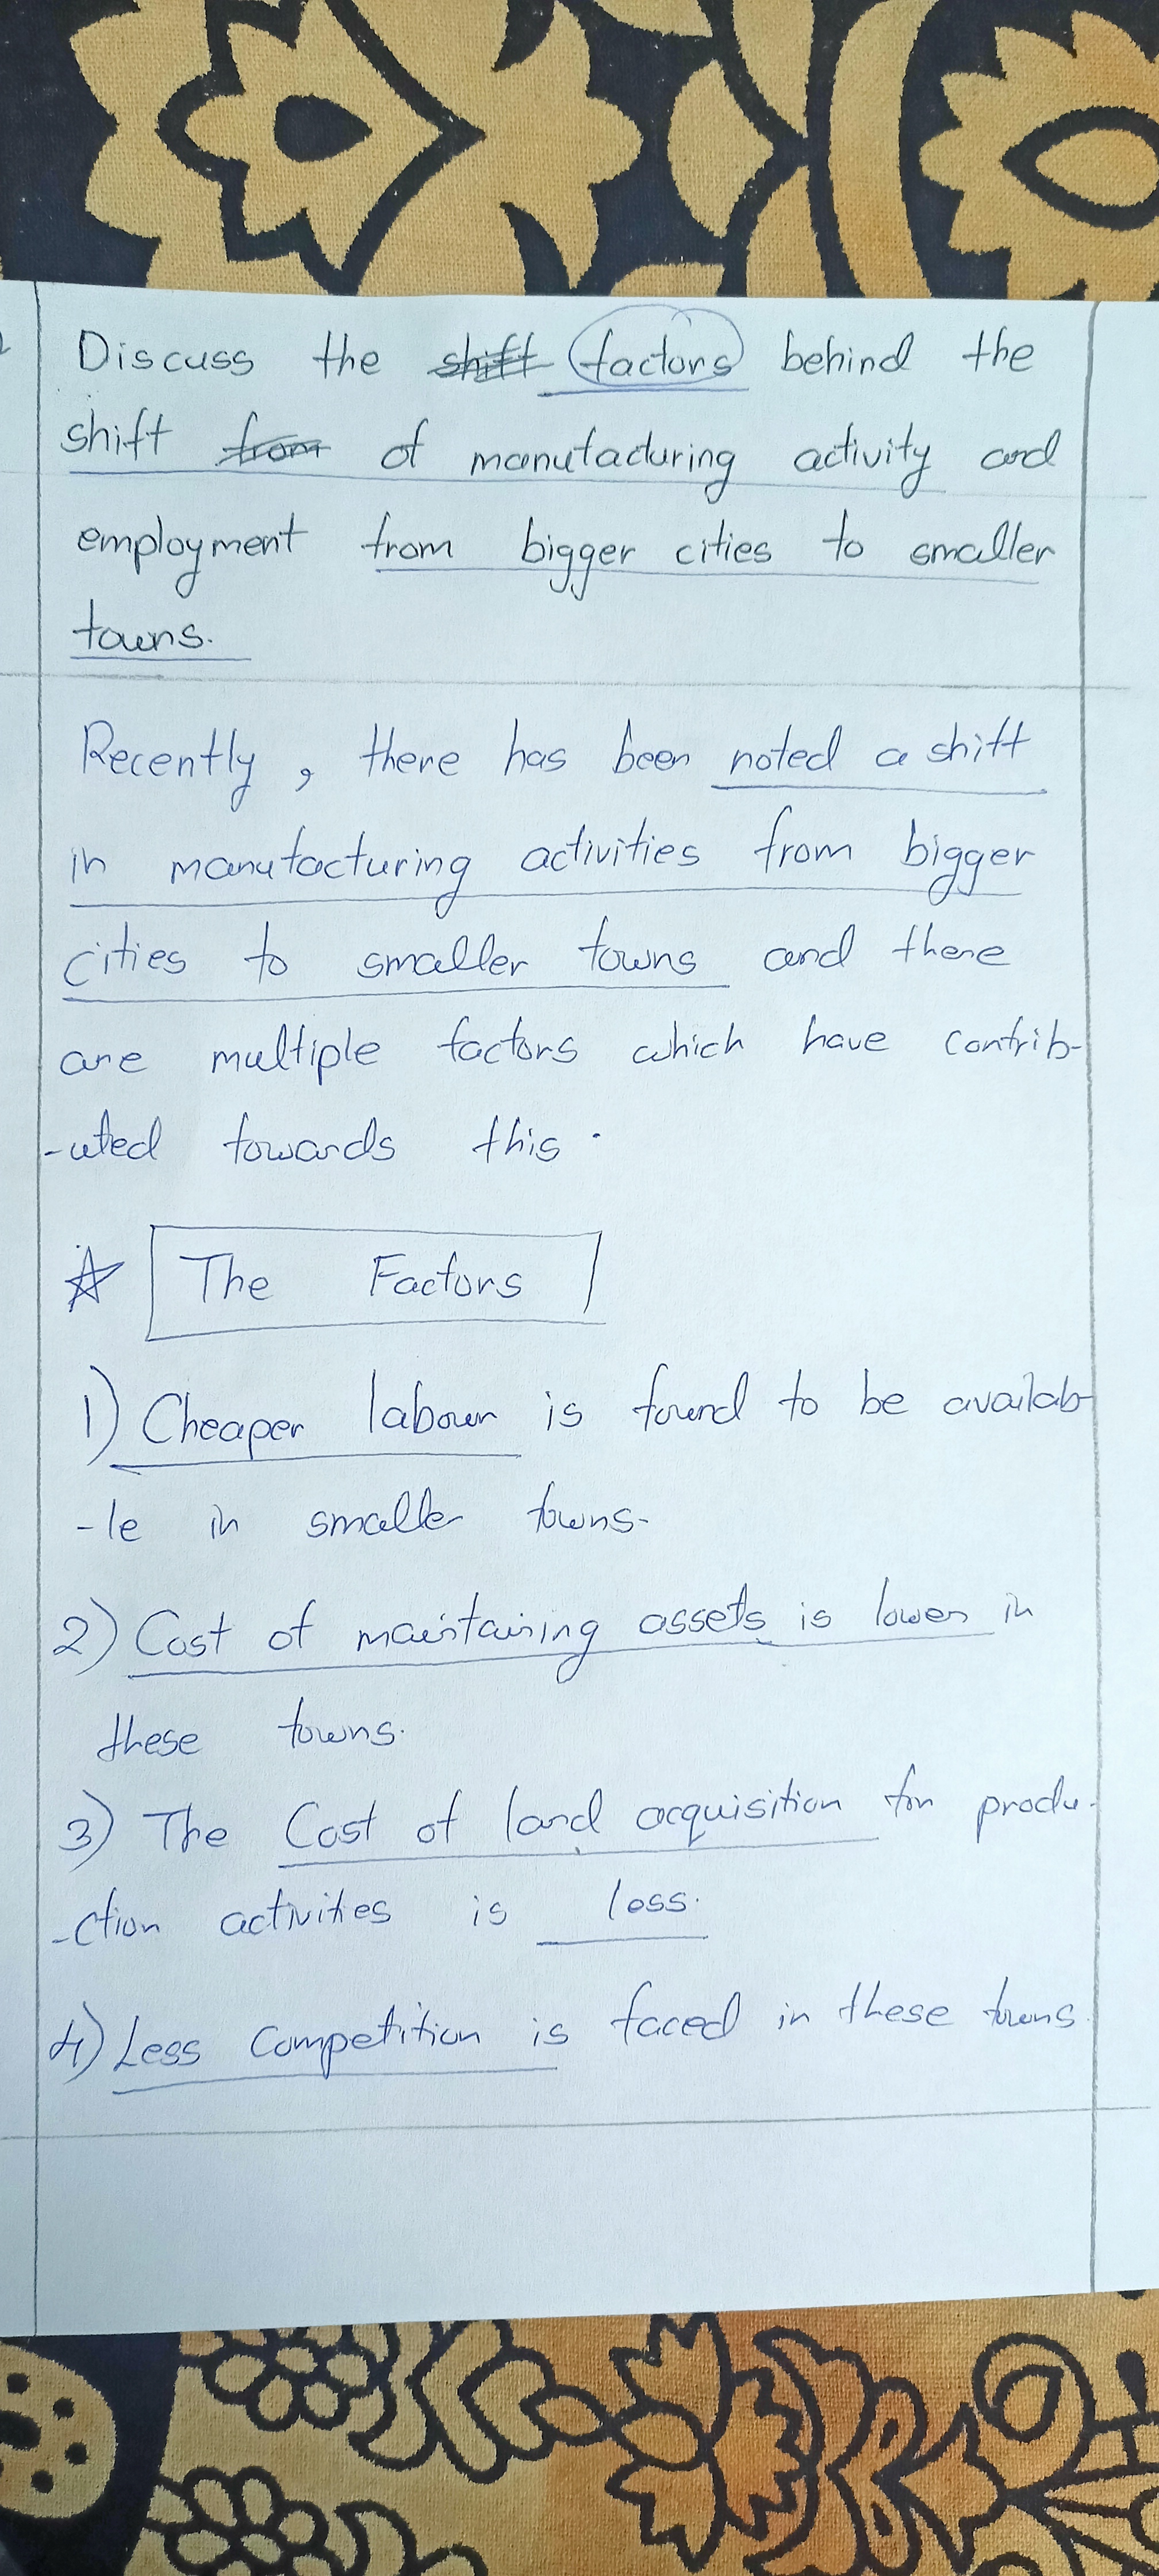 Discuss the shift factors behind the
shift from of manufacturing activity and
employment from bigger cities to smaller
towns.
Recently, there has been noted a shift
in manufacturing activities from bigger
cities to smaller towns and there
are multiple factors which have contrib-
-uted towards this.
The Factors
1) Cheaper labour is found to be availab
-le in smaller towns.
2) Cost of maintaining assets is lower in
these towns.
3) The Cost of land acquisition for produ-
-ction activities is less.
4) Less Competition is faced in these towns.